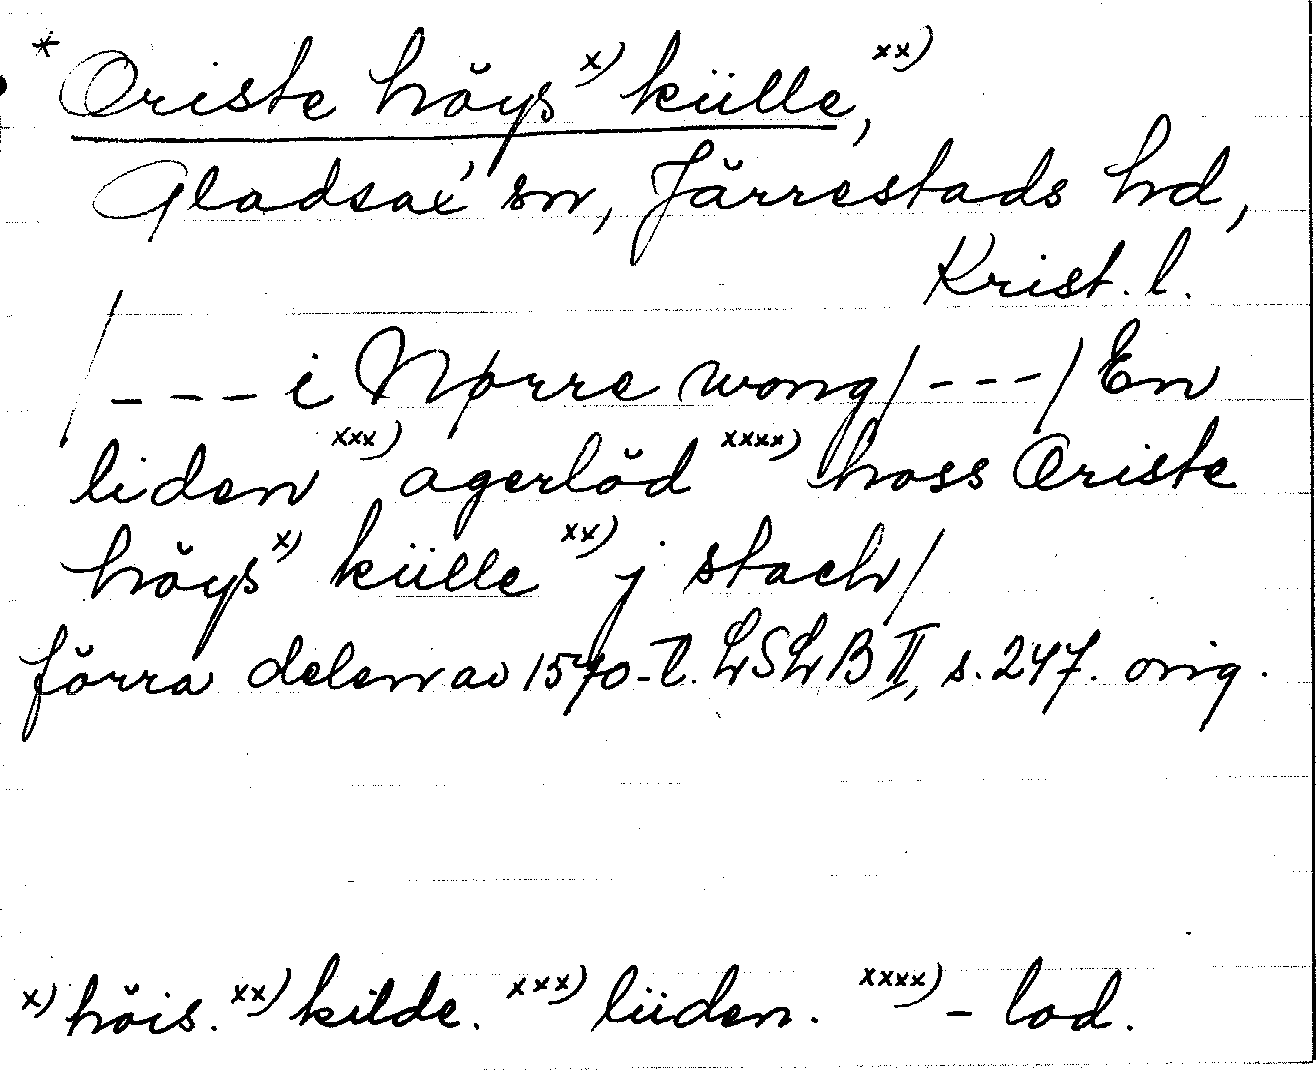 * Oriste höys x) külle, xx)
Gladsax' sn, Järrestads hd,
Krist. l.
/--- i Nørre wong/---/ En
liden xxx) agerlöd xxxx) hoss Oriste
höys x) külle xx) j stach/
förra delen av 1570-t. LSLB II, s. 247. orig.
x) höis. xx) kilde. xxx) liiden. xxxx) - lod.